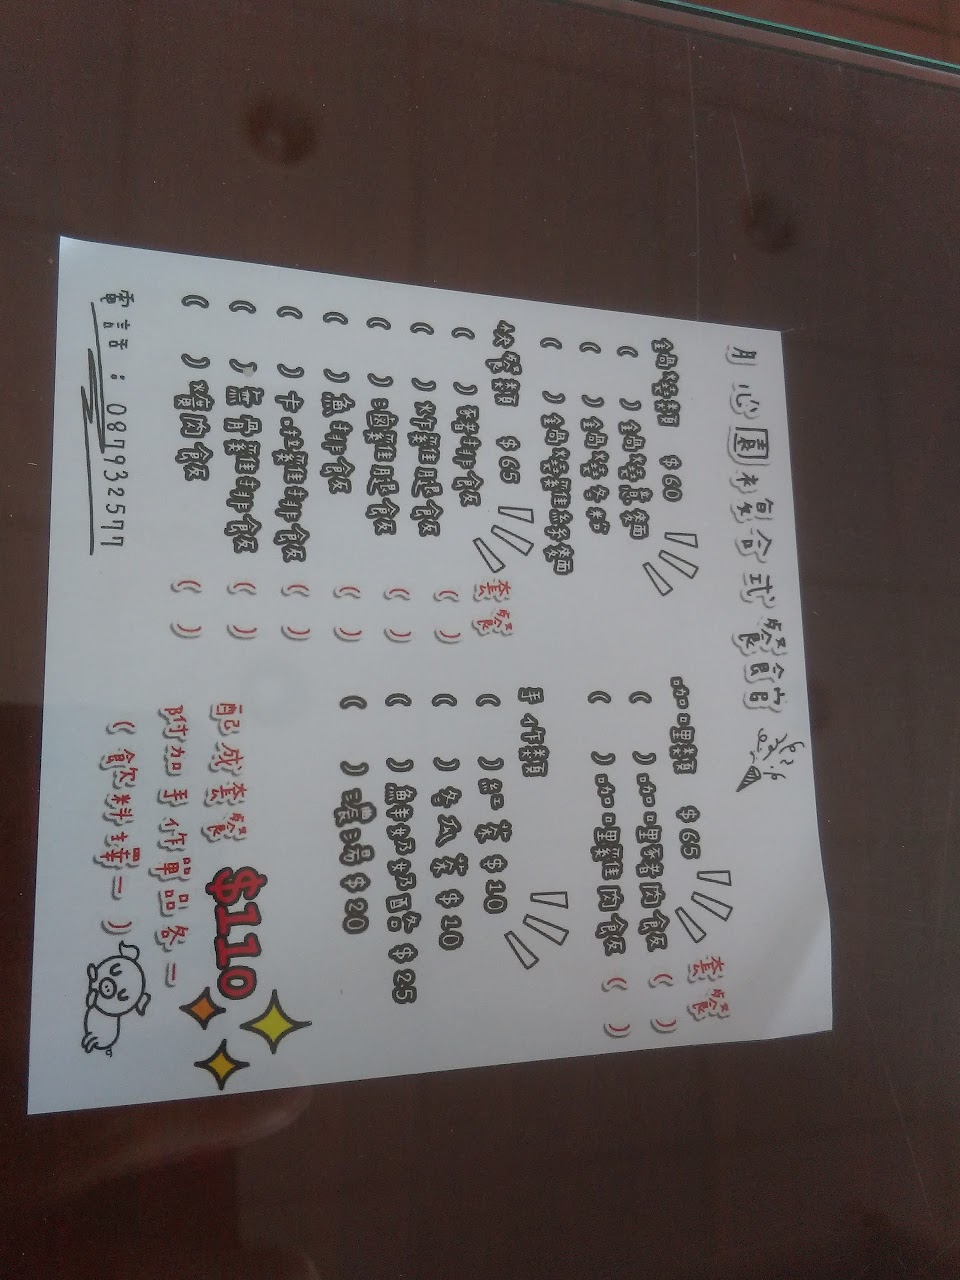 月心園複合式餐館
鍋燒類 $60
( )鍋燒意麵
( )鍋燒冬粉
( )鍋燒雞絲麵
快餐類 $65 套餐
( )豬排飯 ( )
( )炸雞腿飯 ( )
( )滷雞腿飯 ( )
( )魚排飯 ( )
( )卡啦雞排飯 ( )
( )無骨雞排飯 ( )
( )爌肉飯 ( )
電話:087932577
咖哩類 $65 套餐
( )咖哩豬肉飯 ( )
( )咖哩雞肉飯 ( )
手作類
( )紅茶$10
( )冬瓜茶$10
( )鮮奶奶酪$25
( )濃湯$20
配成套餐 $110
附加手作單品各一
(飲料擇一)